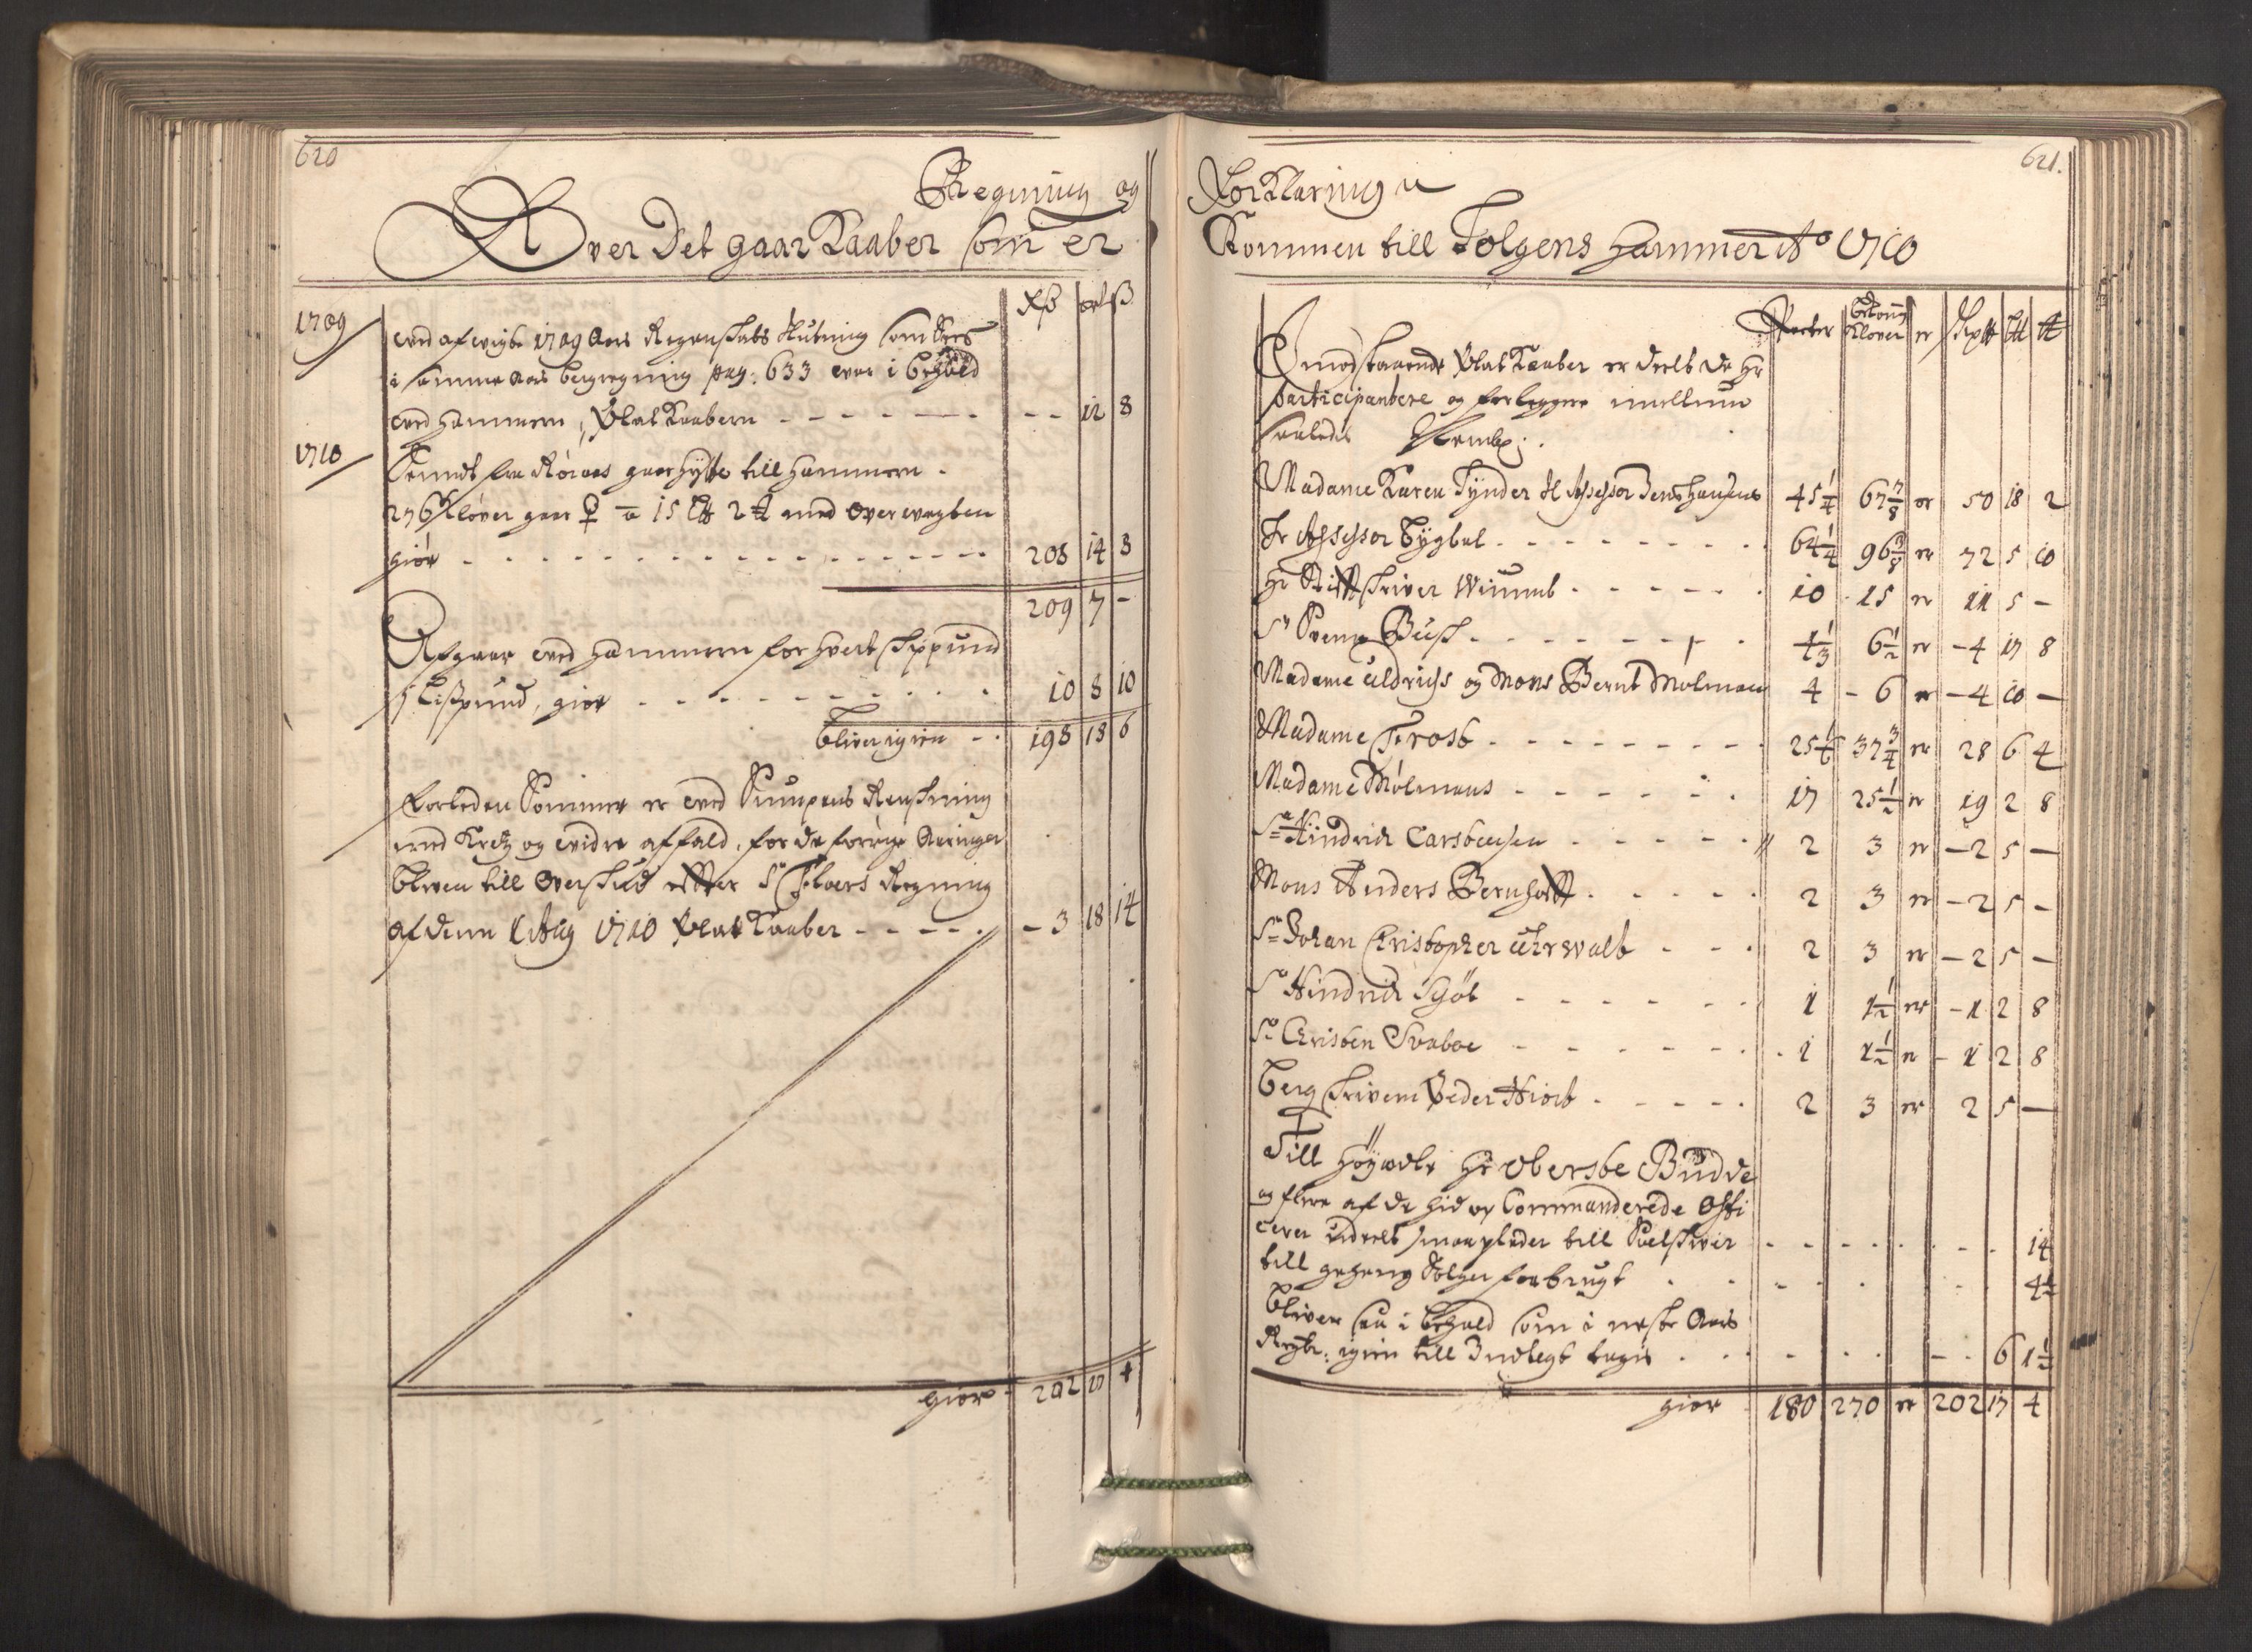 620
Regning og
Over Det gaar Kaaber som er
1709
ved afvigte 1709 Aars Regenskabs slutning som sees
i samme Aars bergregning pag: 633 var i behold
ved hammeren, Plat Kaabern - - - - - - - - 12 8
1710
Sendt fra Röraas gaarhytte till hammern.
276 Kløver gaar ♀ a 15 L℔ 2 ℔ med overvegten
giør - - - - - - - - 208 14 8
209 7 -
Afgaar ved hammeren for hvert skippund
1 Lispund, giør - - - - - 10 8 10
bliver igien - . 198 18 6
Forleden Sommer er ved Sumpens Renskning
med Kretz og vidre affald, for de forrige Aaringer
bleven till Overskud effter Sr Floers Regning
af denn 1 Aug 1710 Plat Kaaber - - - - . - 3 18 14
giør - 202 17 4
621.
Forklaring
Kommen till Tolgens Hammer Ao 1710
Parter Kløver er Skp℔ L℔ ℔
Imodstaaende Plat Kaaber er deelt de Hr
Participantere og forleggere imellum
saaledes
Madame Karen Tynder Sl Assessor Jens Hansens 45 1/4 67 7/8 er 50 18 2
Hr Assessor Tygbel - - - - - - - - 64 1/4 96 3/8 er 72 5 10
Hr Stifftskriver Weinmb . - - - - . 10 15 er 11 5 -
Sr Svend Busk . - - - - - - . 4 1/3 6 1/2 er - 4 17 8
Madame Uldrichs og Mons Bernt Mølman 4 - 6 er - 4 10 -
Madame Frost - - - - - - - - 25 1/6 37 3/4 er 28 6 4
Madame Mølmans - - - - - - . 17 25 1/2 er 19 2 8
Sr Hindrich Carstensen - - - - - 2 3 er - 2 5 -
Mons Anders Bernhofft . - - - - 2 3 er - 2 5 -
Sr Johan Christopher Uhrwalt - - . 2 3 er - 2 5 -
Sr Hindrich Sgöt - - - - - - 1 1 1/2 er - 1 2 8
Sr Christen Svaboe - - - - - - . 1 1 1/2 er - 1 2 8
Bergskriveren Peder Hiort . - - - - . 2 3 er 2 5 -
Till Höyædle Hr Oberste Budde
og flere af de hid op Commanderede Offi
cerer udeelt smaa plader till - . - . - . - . 14
till forbrugt . . - . . 4 1/2
bliver saa i behold som i neste Aars
Regt: igien till Indtegt tages . . . - . . - . 6 1 1/2
giør 180 270 er 202 17 4